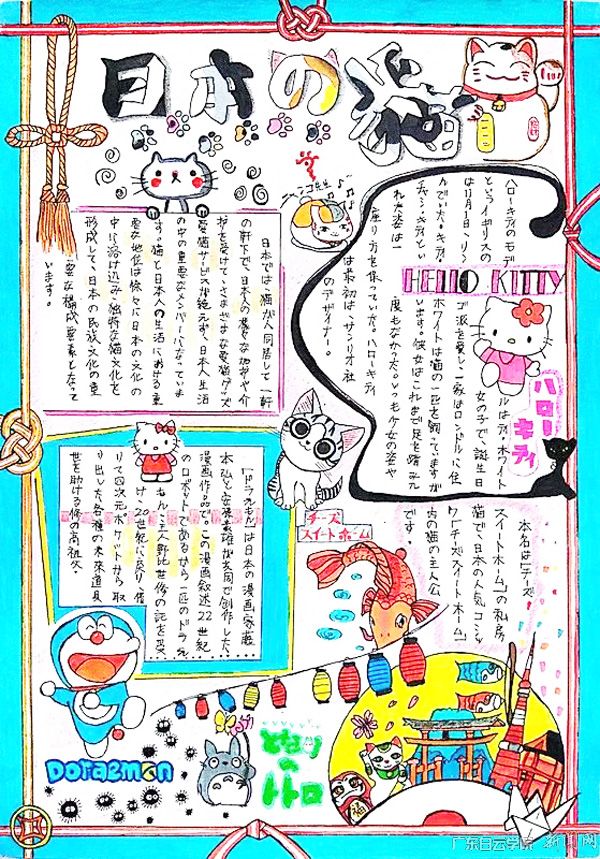 日本の猫
ニャンコ先生
ハローキティのモデ
というイギリスの
は11月1日、リ
んでいた。キティ
れた姿は一
座り方を集っていた。ハローキティ
は最初は、サンリオ社
のデザイナー。
HELLO KITTY
ハローキティ
ルはディ・ホワイト
女の子で、誕生日
家はロンドルに住
ホワイトは猫の一匹を飼って、ますが
います。彼女はこれまで足を踏み元
度もなかった。いつもケ女の姿や
日本では、猫が人と同居して一軒
の軒下で、日本人の
護を受けて、さまざまな愛猫グッズ
愛猫サービスが絶えず、日本人生活
の中の重要なメンバーになっていま
す。猫と日本人の生活における重
要な地位は徐々に日本の文化の
中に溶け込み、独特な猫文化を
形成して、日本の民族文化の重
要な構成要素となって
います。
「ドラえもん」は日本の漫画家藤
本弘と安孫素雄が共同で創作した
漫画作品で、この漫画叙述22世紀
のロボットであるから一匹のドラえ
もん、主人野比世修の記を受
け、20世紀に戻り、借
りて四次元ポケットから取
り出した各種の未来道具
世を助ける修の高祖父。
チーズ
スイートホーム
本名は「チーズ
スイートホーム」の私房
猫で、日本の人気コミッ
ク「チーズスイートホーム」
内の猫の主人公
です。
DORaemon
となりのトトロ
福
广东白云学院 新闻网